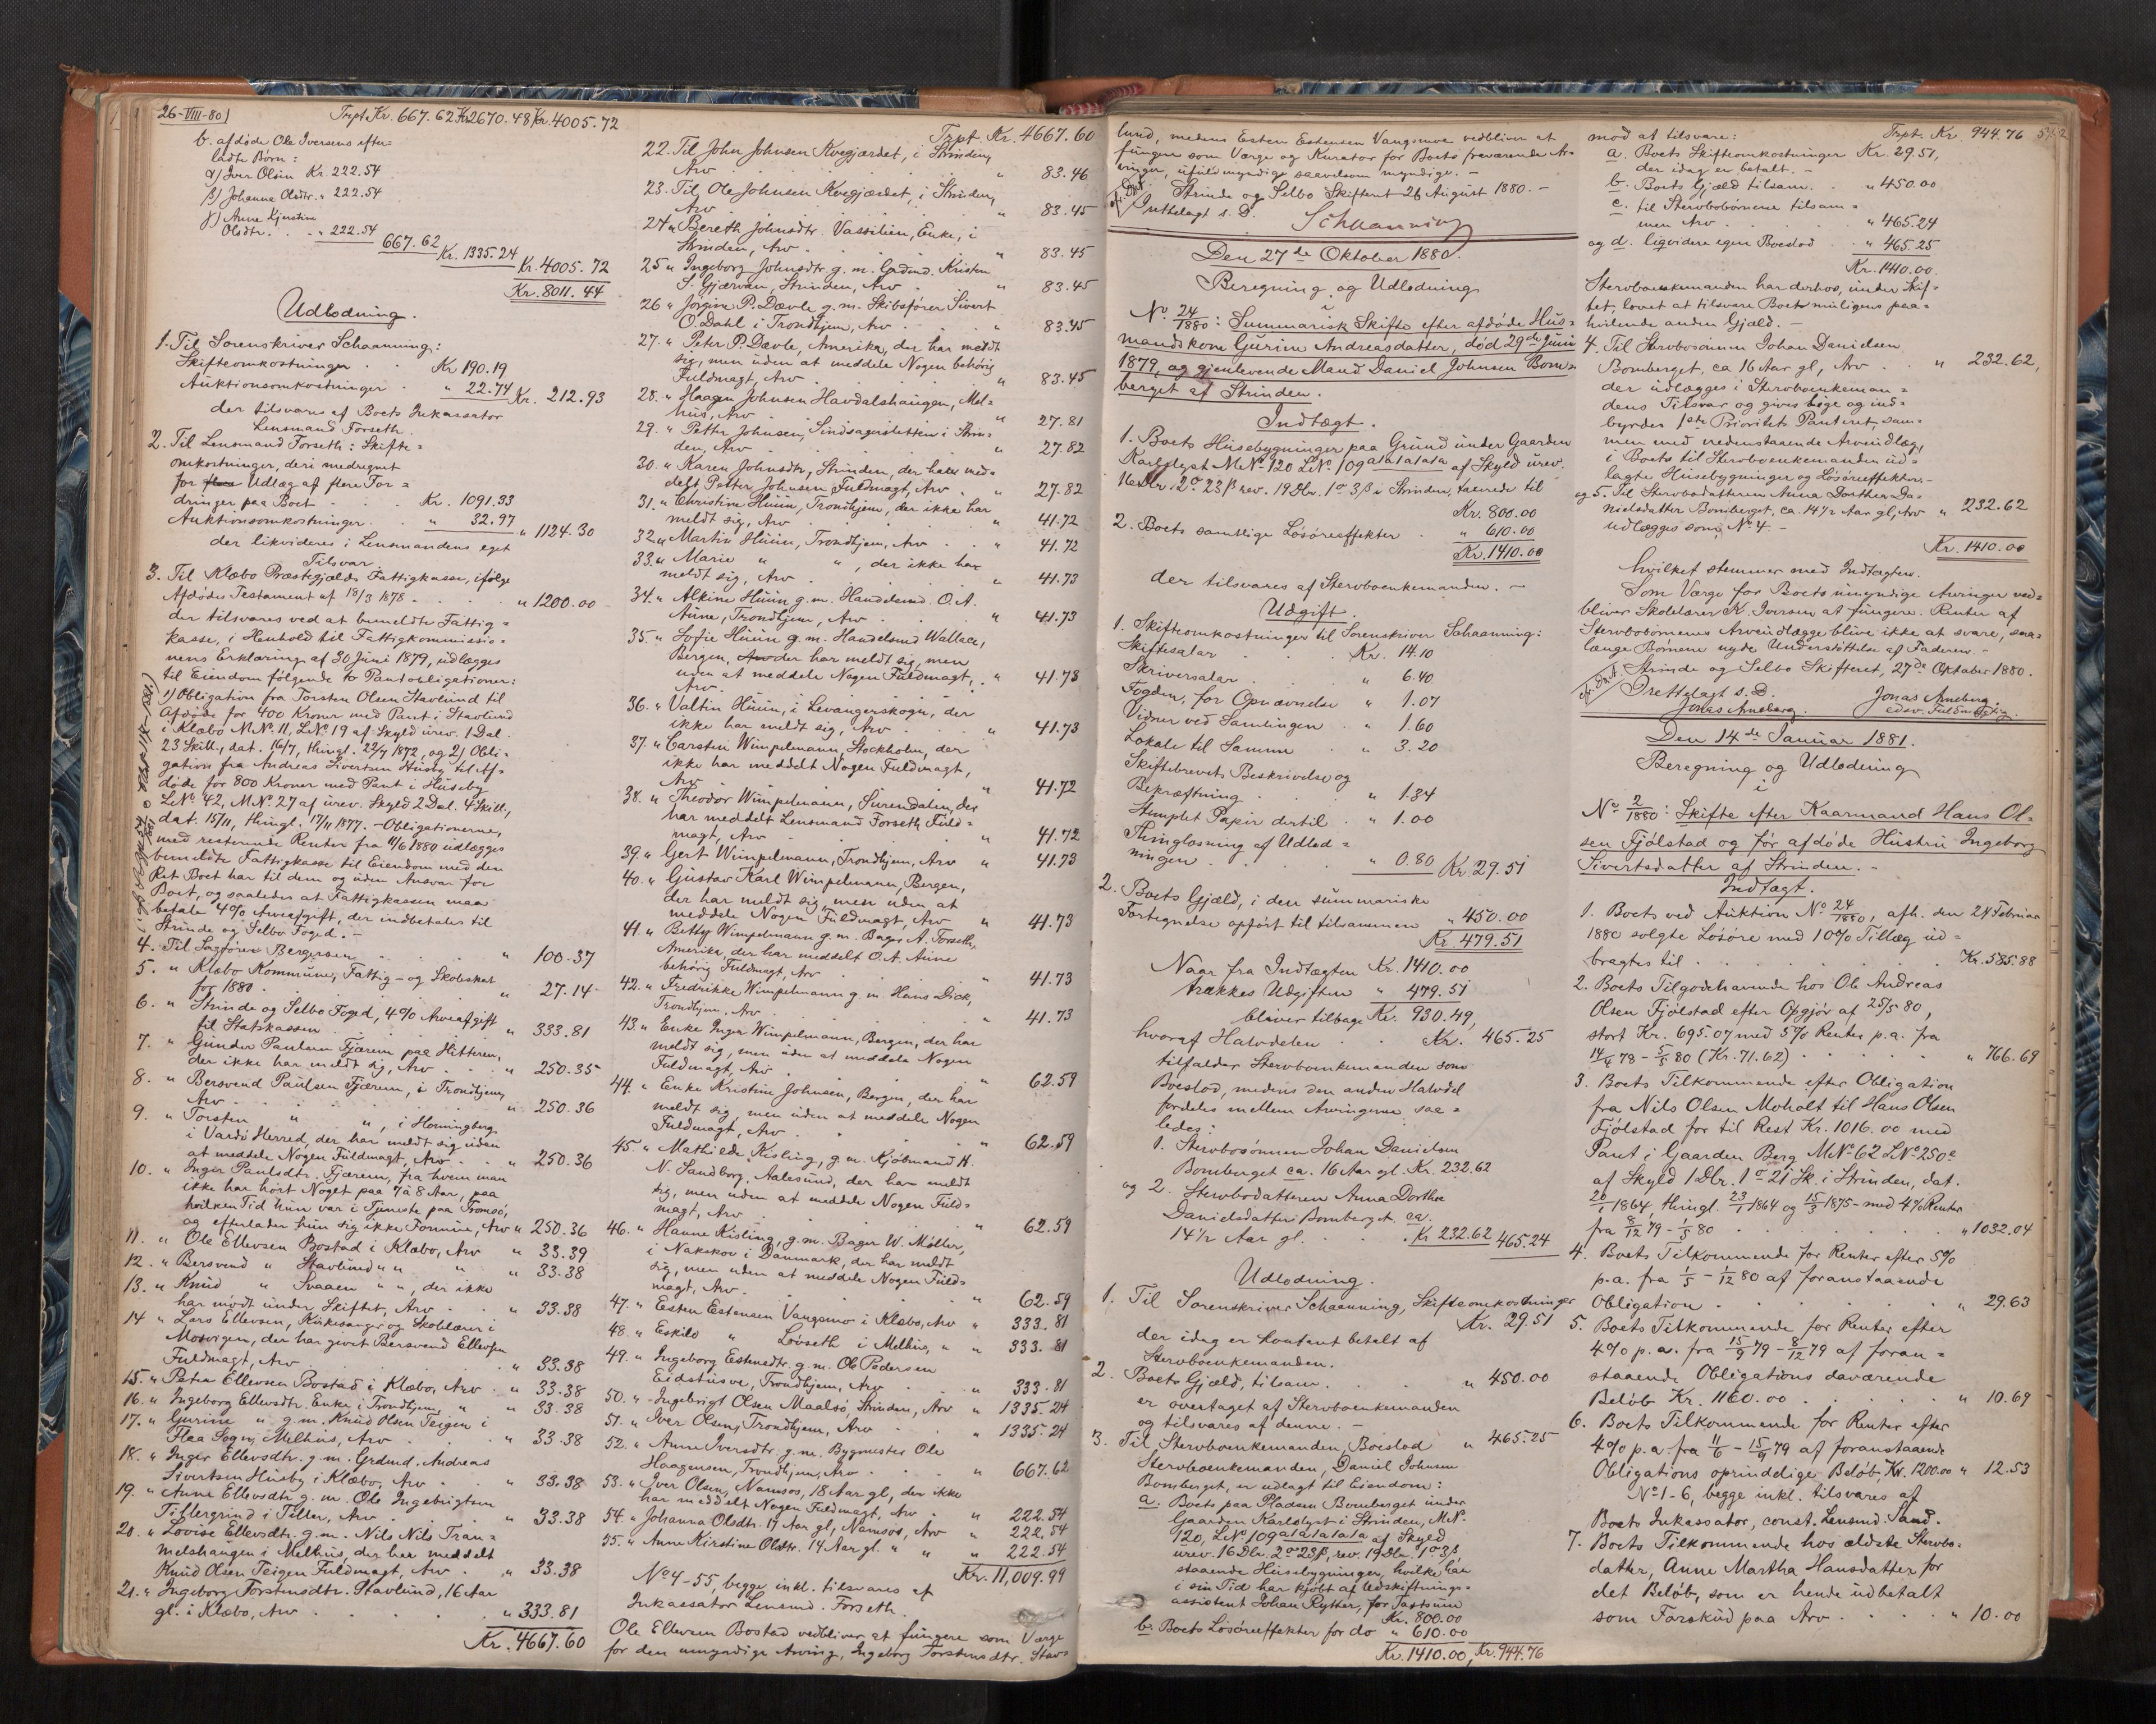 26-VIII-80)
Trpt. Kr. 667.62 Kr. 2670.48 Kr. 4005.72
b. afdøde Ole Iversens efter=
ladte Børn:
α) Iver Olsen Kr. 222.54
β) Johanna Olsdtr. " 222.54
γ) Anne Kjerstine
Olsdtr. . . " 222.54
667.62 Kr. 1335.24
Kr. 4005.72
Kr. 8011.44
Udlodning.
1. Til Sorenskriver Schaanning:
Skifteomkostninger . . Kr 190.19
Auktionsomkostninger . " 22.74 Kr. 212.93
der tilsvares af Boets Inkassator
Lensmand Forseth.
2. Til Lensmand Forseth: Skifte=
omkostninger, deri medregnet
for Udlæg af flere For=
dringer paa Boet . . Kr. 1091.33
Auktionsomkostninger . " 32.97 " 1124.30
der likvideres i Lensmandens eget
Tilsvar.
3. Til Klæbo Præstegjælds Fattigkasse, ifølge
Afdødes Testament af 18/3 1878 . . " 1200.00
der tilsvares ved at bemeldte Fattig=
kasse, i Henhold til Fattigkommissio=
nens Erklæring af 30 Juni 1879, udlægges
til Eiendom følgende to Pantobligationer:
1) Obligation fra Torsten Olsen Stavlund til
Afdøde for 400 Kroner med Pant i Stavlund
i Klæbo M.No. 11, L.No. 19 af Skyld urev. 1 Dal.
23 Skill., dat. 16/7, thingl. 22/7 1872, og 2) Obli=
gation fra Andreas Sivertsen Huseby til Af=
døde for 800 Kroner med Pant i Huseby
L.No. 42, M.No. 27 af urev. Skyld 2 Dal. 4 Skill.,
dat. 15/11, thingl. 17/11 1877. - Obligationerne,
med resterende Renter fra 11/6 1880 udlægges
bemeldte Fattigkasse til Eiendom med den
Ret Boet har til dem og uden Ansvar for
Boet, og saaledes at Fattigkassen maa
betale 4% Arveafgift, der indbetales til
Strinde og Selbo Foged. -
4. Til Sagfører Bergersen . . " 100.37
5. " Klæbo Kommune, Fattig- og Skoleskat
for 1880 . . " 27.14
6. " Strinde og Selbo Foged, 4% Arveafgift
til Statskassen . . " 333.81
7. " Gunder Paulsen Fjærem paa Hitteren,
der ikke har meldt sig, Arv . . " 250.35
8. " Bersvend Paulsen Fjærem, i Trondhjem,
Arv . . " 250.36
9. " Torsten " " , i Horningberg
i Vardö Herred, der har meldt sig uden
at meddele Nogen Fuldmagt, Arv . " 250.36
10. " Inger Paulsdtr. Fjærem, fra hvem man
ikke har hört Noget paa 7 à 8 Aar, paa
hvilken Tid hun var i Tjeneste paa Tromsö,
og efterlader hun sig ikke Formue, Arv " 250.36
11. " Ole Ellevsen Bostad i Klæbo, Arv " 33.39
12. " Bersvend " Stavlund " " " " 33.38
13. " Knud " Svaaen " " , der ikke
har mödt under Skiftet, Arv . " 33.38
14 " Lars Ellevsen, Kirkesanger og Skolelærer i
Mosvigen, der har givet Bersvend Ellevsen
Fuldmagt, Arv . . " 33.38
15. " Peter Ellevsen Bostad i Klæbo, Arv . " 33.38
16. " Ingeborg Ellevsdtr. Enke i Trondhjem, " " 33.38
17. " Gurine " g. m. Knud Olsen Teigen i
Flaa Sogn, Melhus, Arv . . " 33.38
18. " Inger Ellevsdtr. g. m. Grdmd. Andreas
Sivertsen Huseby i Klæbo, Arv . " 33.38
19. " Anne Ellevsdtr. g. m. Ole Ingebrigtsen
Tillergrind i Tiller, Arv . . " 33.38
20. " Lovise Ellevsdtr. g. m. Nils Nils Tran=
melshaugen i Melhus, der har meddelt
Knud Olsen Teigen Fuldmagt, Arv . " 33.38
21. " Ingeborg Torstensdtr. Stavlund, 16 Aar
gl. i Klæbo, Arv . . " 333.81
Kr. 4667.60
Trpt. Kr. 4667.60
22. Til John Johnsen Kvegjærdet, i Strinden,
Arv . . " 83.46
23. Til Ole Johnsen Kvegjærdet, i Strinden,
Arv . . " 83.45
24 " Bereth Johnsdtr. Vassilien, Enke, i
Strinden, Arv . . " 83.45
25 " Ingeborg Johnsdtr. g. m. Grdmd. Kristen
S. Gjærvan, Strinden, Arv . " 83.45
26 " Jörgine P. Dævle g. m. Skibsfører Sivert
O. Dahl i Trondhjem, Arv . . " 83.45
27. " Peter P. Dævle, Amerika, der har meldt
sig, men uden at meddele Nogen behörig
Fuldmagt, Arv . . " 83.45
28. " Haagen Johnsen Havdalshaugen, Mel=
hus, Arv . . " 27.81
29. " Petter Johnsen, Sindsagersletten i Strin=
den, Arv . . " 27.82
30. " Karen Johnsdtr, Strinden, der har med=
delt Petter Johnsen Fuldmagt, Arv . " 27.82
31. " Christine Huun, Trondhjem, der ikke har
meldt sig, Arv . . " 41.72
32. " Martin Huun, Trondhjem, Arv . . " 41.72
33. " Marie " " , der ikke har
meldt sig, Arv . . " 41.73
34. " Alkine Huun g. m. Handelsmd. O. A.
Aune, Trondhjem, Arv . . " 41.73
35. " Sofie Huun g. m. Handelsmd Wallace,
Bergen, der har meldt sig, men
uden at meddele Nogen Fuldmagt, . " 41.73
Arv.
36. " Valtin Huun, i Levangerskogn, der
ikke har meldt sig, Arv . . " 41.73
37. " Carsten Wimpelmann, Stockholm, der
ikke har meddelt Nogen Fuldmagt,
Arv . . " 41.72
38. " Theodor Wimpelmann, Surendalen, der
har meddelt Lensmand Forseth Fuld=
magt, Arv . . " 41.72
39. " Gert Wimpelmann, Trondhjem, Arv " 41.73
40. " Gustav Karl Wimpelmann, Bergen,
der har meldt sig, men uden at
meddele Nogen Fuldmagt, Arv " 41.73
41. " Betty Wimpelmann g. m. Bager A. Forseth,
Amerika, der har meddelt O. A. Aune
behörig Fuldmagt, Arv . . " 41.73
42. " Fredrikke Wimpelmann g. m. Hans Dick,
Trondhjem, Arv . . " 41.73
43. " Enke Inger Wimpelmann, Bergen, der har
meldt sig, men uden at meddele Nogen
Fuldmagt, Arv . . " 62.59
44. " Enke Kristine Johnsen, Bergen, der har
meldt sig, men uden at meddele Nogen
Fuldmagt, Arv . . " 62.59
45. " Mathilde Kisling, g. m. Kjöbmand H.
N. Sandborg, Aalesund, der har meldt
sig, men uden at meddele Nogen Fuld=
magt, Arv . . " 62.59
46. " Hanne Kisling, g. m. Bager W. Møller,
i Nakskov i Danmark, der har meldt
sig, men uden at meddele Nogen Fuld=
magt, Arv . . " 62.59
47. " Esten Estensen Vangsmo i Klæbo, Arv " 333.81
48. " Eskild " Løvseth i Melhus, " " 333.81
49. " Ingeborg Estensdtr. g. m. Ole Pedersen
Eidstuve, Trondhjem, Arv . . " 333.81
50. " Ingebrigt Olsen Maalsö, Strinden, Arv " 1335.24
51. " Iver Olsen, Trondhjem, Arv . . " 1335.24
52. " Anne Iversdtr. g. m. Bygmester Ole
Haagensen, Trondhjem, Arv . . " 667.62
53. " Iver Olsen, Namsos, 18 Aar gl., der ikke
har meddelt Nogen Fuldmagt, Arv . " 222.54
54. " Johanna Olsdtr. 17 Aar gl, Namsos, Arv " 222.54
55. " Anne Kirstine Olsdtr. 14 Aar gl. " " " 222.54
Kr. 11,009.99
No 4-55, begge inkl. tilsvares af
Inkassator Lensmd. Forseth.
Ole Ellevsen Bostad vedbliver at fungere som Værge
for den umyndige Arving, Ingeborg Torstensdtr. Stav=
lund, medens Esten Estensen Vangsmoe vedbliver at
fungere som Værge og Kurator for Boets fraværende Ar=
vinger, ufuldmyndige saavelsom myndige. -
Strinde og Selbo Skifteret 26 August 1880. -
Irettelagt s. D.
Schaanning
Den 27de Oktober 1880.
Beregning og Udlodning
i
No. 24/1880: Summarisk Skifte efter afdøde Hus=
mandskone Gurine Andreasdatter, död 29de Juni
1879, og gjenlevende Mand Daniel Johnsen Bom=
berget af Strinden.
Indtægt.
1. Boets Husebygninger paa Grund under Gaarden
Karlslyst M.No. 120 L.No. 109 a/a/a/a/a af Skyld urev.
16 Dlr. 2 o 23 β rev. 19 Dlr. 1 o 3 β i Strinden, taxerede til
Kr. 800.00
2. Boets samtlige Lösöreeffekter . " 610.00
Kr. 1410.00
der tilsvares af Stervboenkemanden. -
Udgift.
1. Skifteomkostninger til Sorenskriver Schaanning:
Skiftesalar . . Kr. 14.10
Skriversalar . . " 6.40
Fogden, for Opnævnelse " 1.07
Vidner ved Samlingen . " 1.60
Lokale til Samme . " 3.20
Skiftebrevets Beskrivelse og
Bekræftning . . " 1.34
Stemplet Papir dertil . " 1.00
Thinglæsning af Udlod=
ningen . . " 0.80 Kr 29.51
2. Boets Gjæld, i den summariske
Fortegnelse opført til tilsammen " 450.00
Kr. 479.51
Naar fra Indtægten Kr. 1410.00
trækkes Udgiften " 479.51
bliver tilbage Kr. 930.49,
hvoraf Halvdelen . . Kr. 465.25
tilfalder Stervboenkemanden som
Boeslod, medens den anden Halvdel
fordeles mellem Arvingerne saa=
ledes:
1. Stervbosönnen Johan Danielsen
Bomberget ca. 16 Aar gl. Kr. 232.62
og 2. Stervbodatteren Anna Dorthea
Danielsdatter Bomberget ca.
14½ Aar gl. . . Kr 232.62 465.24
Udlodning.
1. Til Sorenskriver Schaanning, Skifteomkostninger
Kr. 29.51
der idag er kontant betalt af
Stervboenkemanden.
2. Boets Gjæld, tilsam. . . " 450.00
er overtaget af Stervboenkemanden
og tilsvares af denne. -
3. Til Stervboenkemanden, Boeslod " 465.25
Stervboenkemanden, Daniel Johnsen
Bomberget, er udlagt til Eiendom:
a. Boets paa Pladsen Bomberget under
Gaarden Karlslyst i Strinden, M.No.
120, L.No. 109 a/a/a/a/a af Skyld
urev. 16 Dlr. 2 o 23 β, rev. 19 Dlr. 1 o 3 β
staaende Husebygninger, hvilke han
i sin Tid har kjöbt af Udskiftnings=
assistent Johan Rytter, for Taxtsum
Kr. 800.00
b. Boets Lösöreeffekter for do " 610.00
Kr. 1410.00, Kr. 944.76
Trpt. Kr. 944.76
mod at tilsvare:
a. Boets Skifteomkostninger Kr. 29.51,
der idag er betalt. -
b. Boets Gjæld tilsam. . " 450.00
c. til Stervbobørnene tilsam=
men Arv . . " 465.24
og d. ligvidere egen Boeslod . " 465.25
Kr. 1410.00.
Stervboenkemanden har derhos, under Skif=
tet, lovet at tilsvare Boets muligens paa=
hvilende anden Gjæld. -
4. Til Stervbosönnen Johan Danielsen
Bomberget, ca 16 Aar gl, Arv . " 232.62,
der udlægges i Stervboenkeman=
dens Tilsvar og gives lige og ind=
byrdes 1ste Prioritets Panteret, sam=
men med nedenstaaende Arveudlæg,
i Boets til Stervboenkemanden ud=
lagte Husebygninger og Lösöreeffekter. -
og 5. Til Stervbodatteren Anna Dorthea Da=
nielsdatter Bomberget, ca. 14½ Aar gl, Arv " 232.62
udlægges som No 4. -
Kr. 1410.00
hvilket stemmer med Indtægten.
Som Værge for Boets umyndige Arvinger ved=
bliver Skolelærer K. Iversen at fungere. Renter af
Stervbobørnenes Arveudlægge blive ikke at svare, saa=
længe Børnene nyde Understöttelse af Faderen. -
Strinde og Selbo Skifteret, 27de Oktober 1880.
Irettelagt s. D.
Jonas Arneberg
Jonas Arneberg
edsv. Fuldmægtig.
Den 14de Januar 1881.
Beregning og Udlodning
i
No 2/1880: Skifte efter Kaarmand Hans Ol=
sen Fjölstad og för afdöde Hustru Ingeborg
Sivertsdatter af Strinden. -
Indtægt.
1. Boets ved Auktion No 24/1880, afh. den 24 Februar
1880 solgte Lösöre med 10% Tillæg ud=
bragtes til . . Kr. 585.88
2. Boets Tilgodehavende hos Ole Andreas
Olsen Fjölstad efter Opgjör af 25/5 80,
stort Kr. 695.07 med 5% Renter p. a. fra
14/4 78 - 5/5 80 (Kr. 71.62) . . " 766.69
3. Boets Tilkommende efter Obligation
fra Nils Olsen Moholt til Hans Olsen
Fjölstad for til Rest Kr. 1016.00 med
Pant i Gaarden Berg M.No. 62 L.No. 250a
af Skyld 1 Dlr. 1 o 21 Sk. i Strinden, dat.
20/1 1864, thingl. 23/1 1864 og 15/3 1875 - med 4% Renter
fra 8/12 79 - 1/5 80 . . " 1032.04
4. Boets Tilkommende for Renter efter 5%
p. a. fra 1/5 - 1/12 80 af foranstaaende
Obligation . . " 29.63
5. Boets Tilkommende for Renter efter
4% p. a. fra 15/9 79 - 8/12 79 af foran=
staaende Obligations daværende
Beløb Kr. 1160.00 . . " 10.69
6. Boets Tilkommende for Renter efter
4% p. a. fra 11/6 - 15/9 79 af foranstaaende
Obligations oprindelige Beløb Kr. 1200.00 " 12.53
No 1-6, begge inkl. tilsvares af
Boets Inkassator, const. Lensmd. Sand.
7. Boets Tilkommende hos ældste Stervbo=
datter, Anne Martha Hansdatter for
det Beløb, som er hende udbetalt
som Forskud paa Arv . . " 10.00